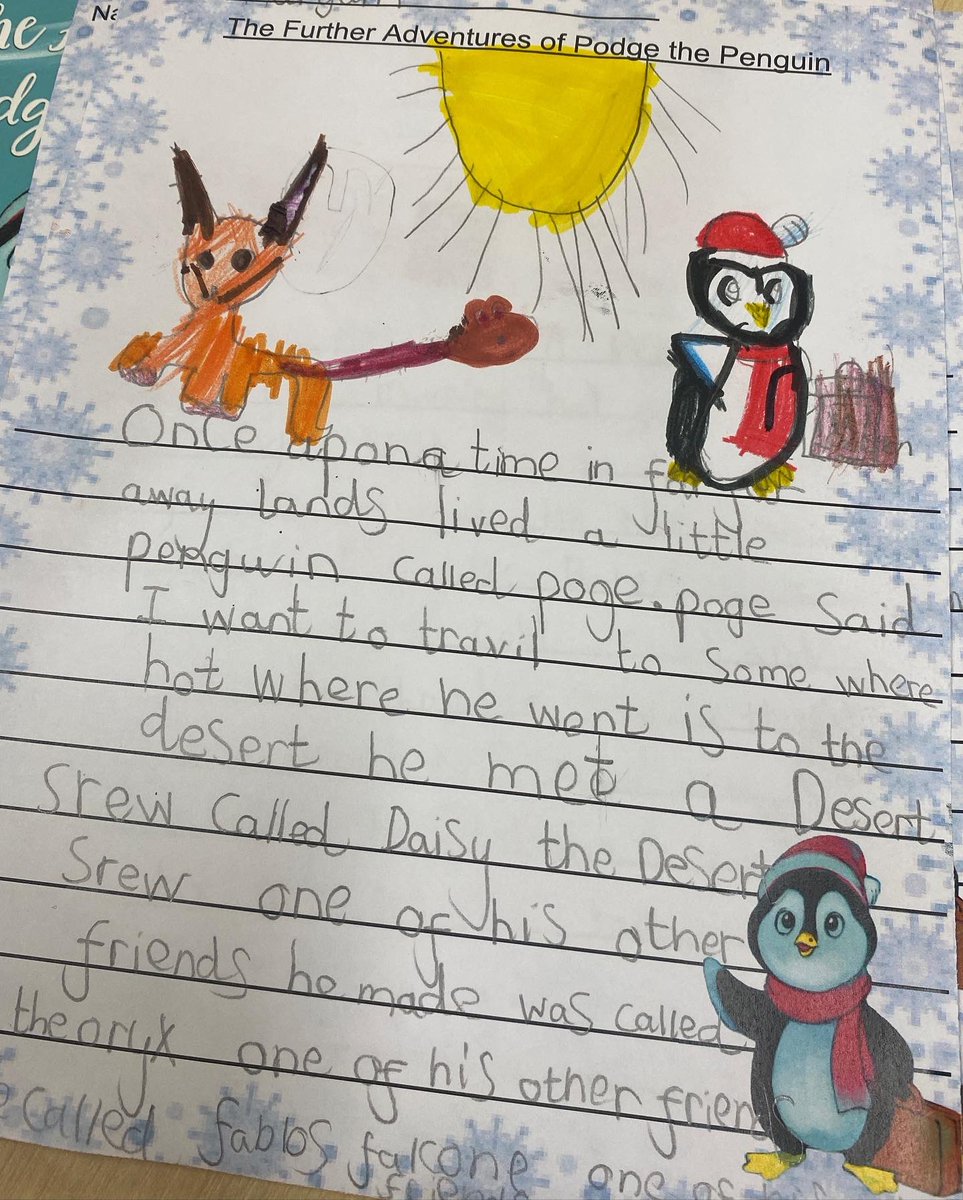 The Further Adventures of Podge the Penguin
Once apona time in far far
away lands lived a little
pengwin called poge. poge Said
I want to travil to Some where
hot where he went is to the
desert he met a Desert
Srew Called Daisy the Desert
Srew one of his other
friends he made was called
the oryx one of his other frien
called fablos falcone one
friends